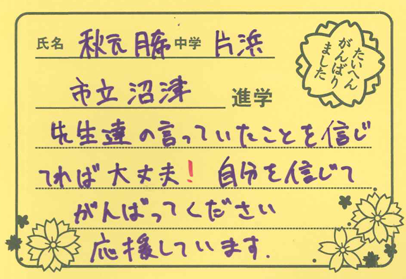 氏名 秋元 勝 中学 片浜
たいへん
がんばり
ました
市立沼津 進学
先生達の言っていたことを信じ
てれば大丈夫! 自分を信じて
がんばってください
応援しています.